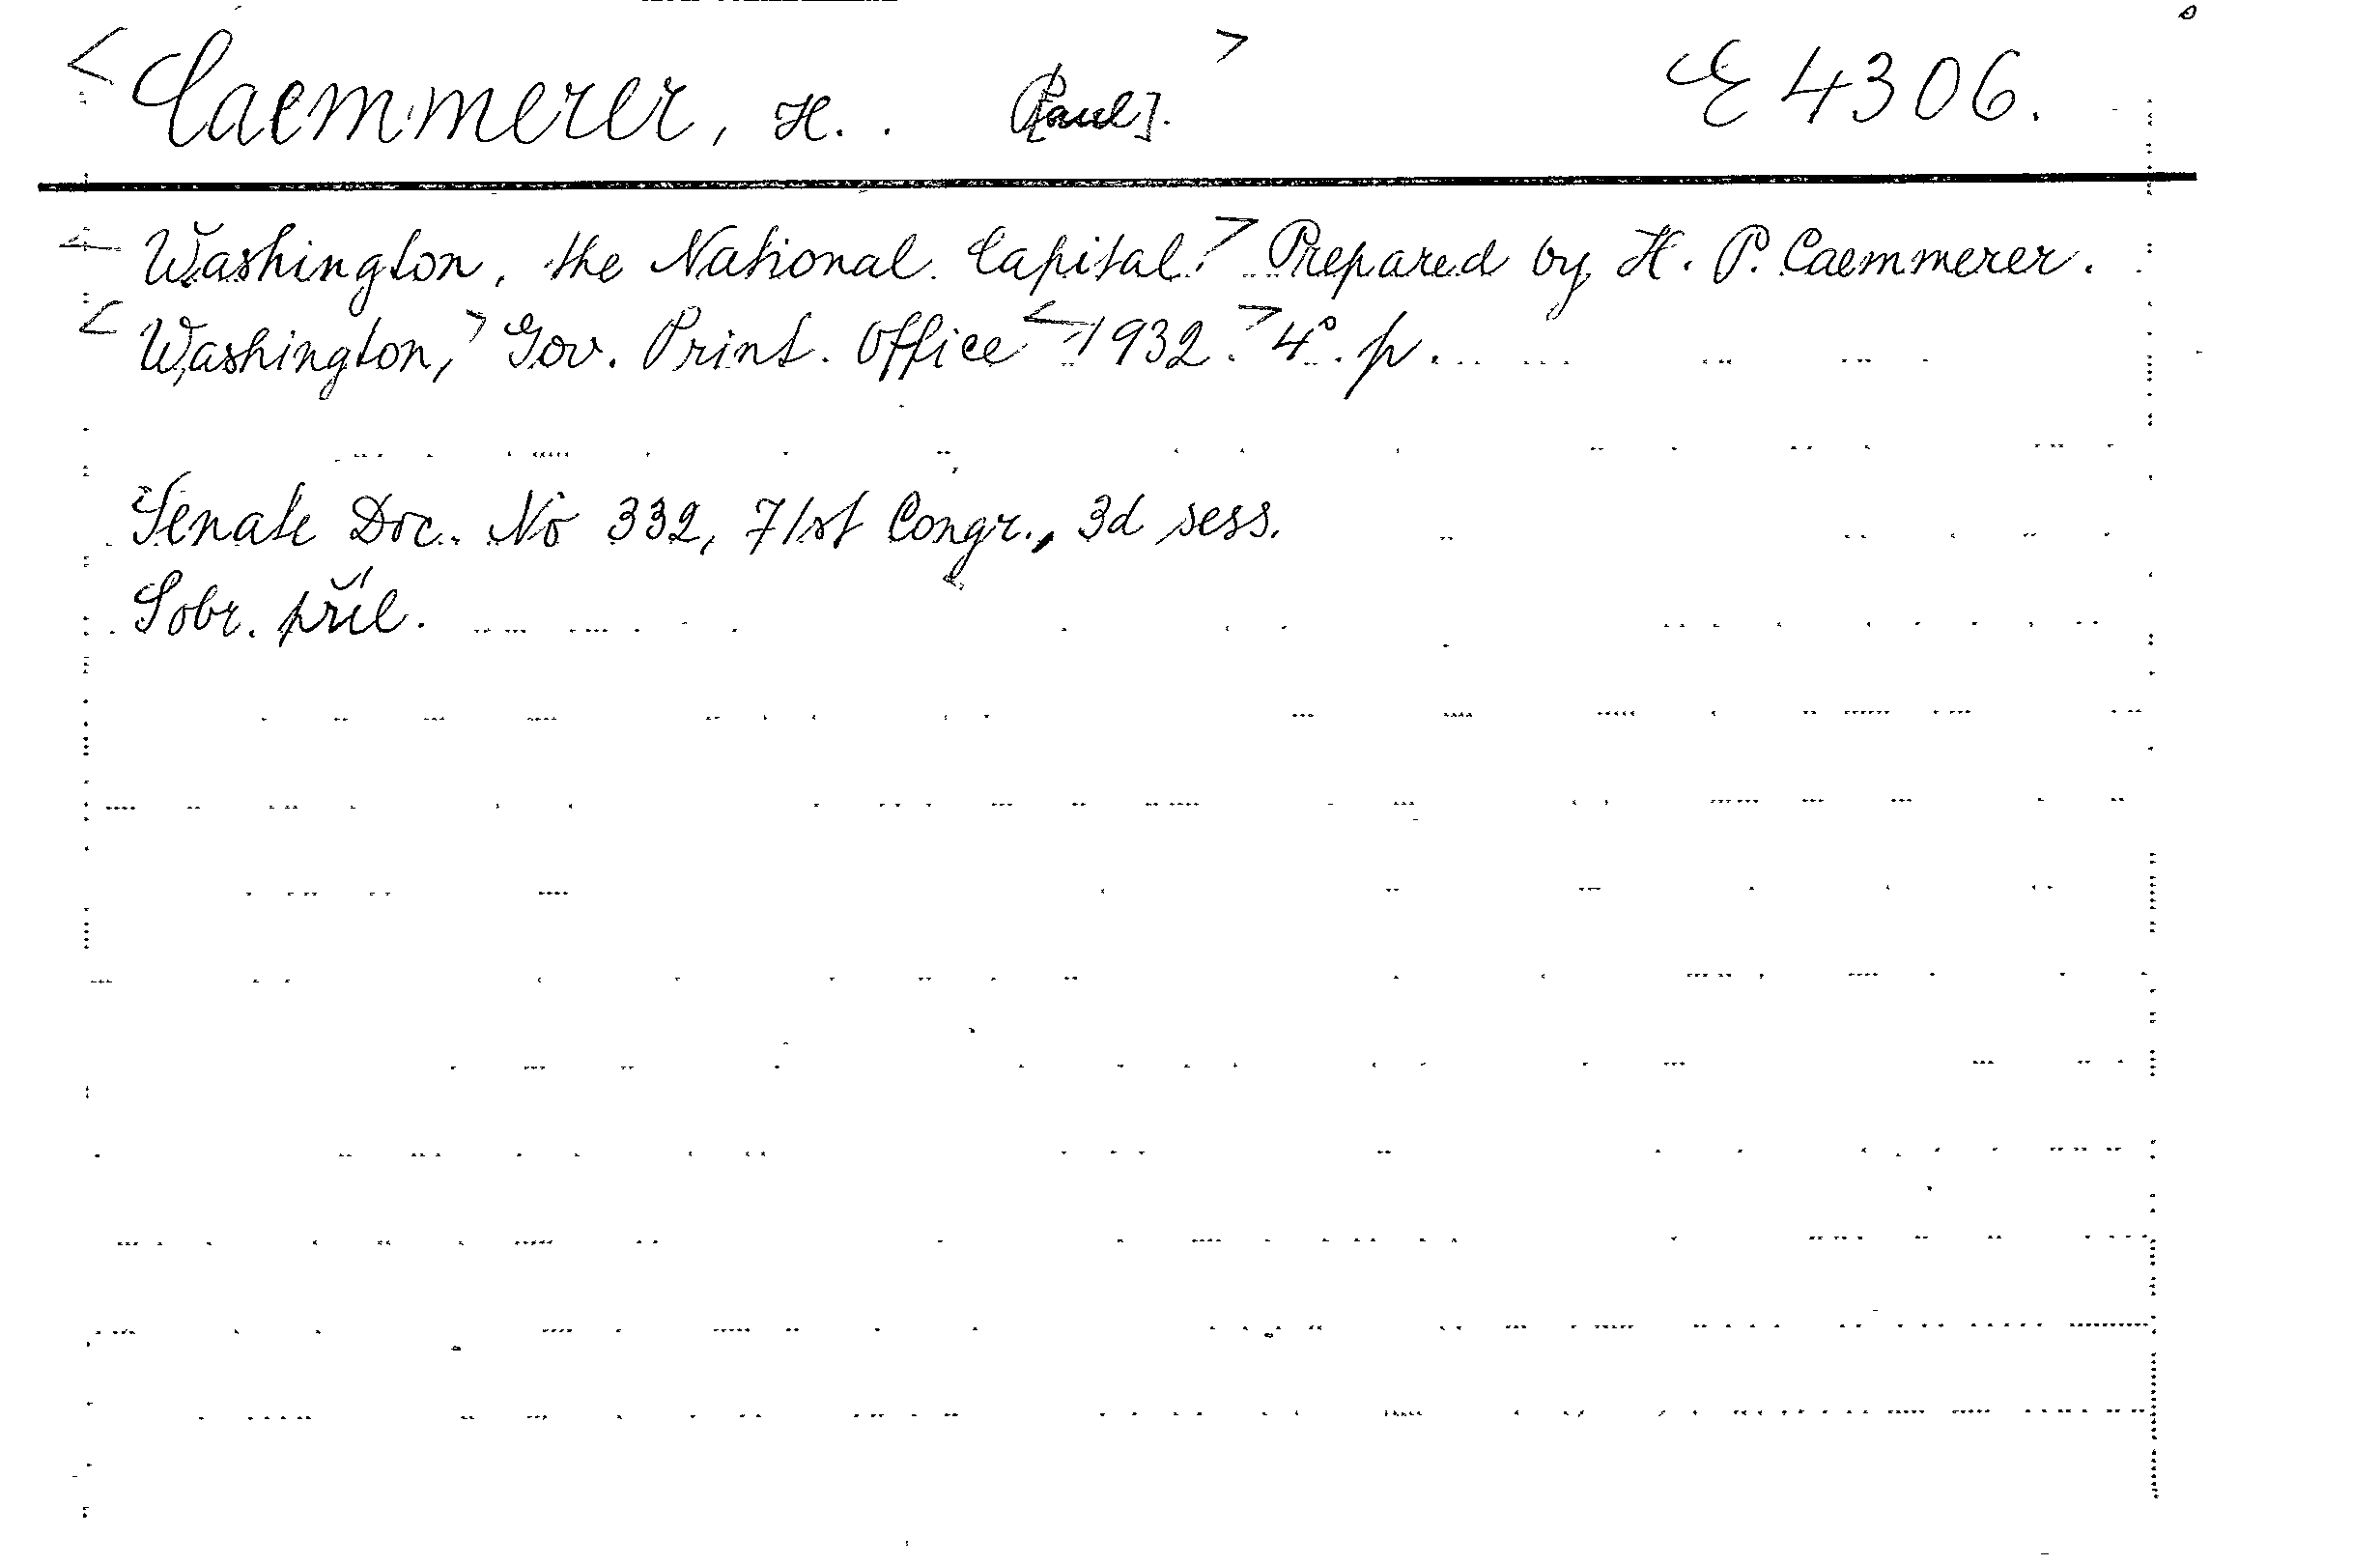 <Caemmerer, H. . [Paul].> E 4306.
<Washington, the National Capital.> Prepared by H. P. Caemmerer.
<Washington,> Gov. Print. Office <1932.> 4°. p.
Senate Doc. No 332, 71st Congr., 3d sess.
Sobr. příl.